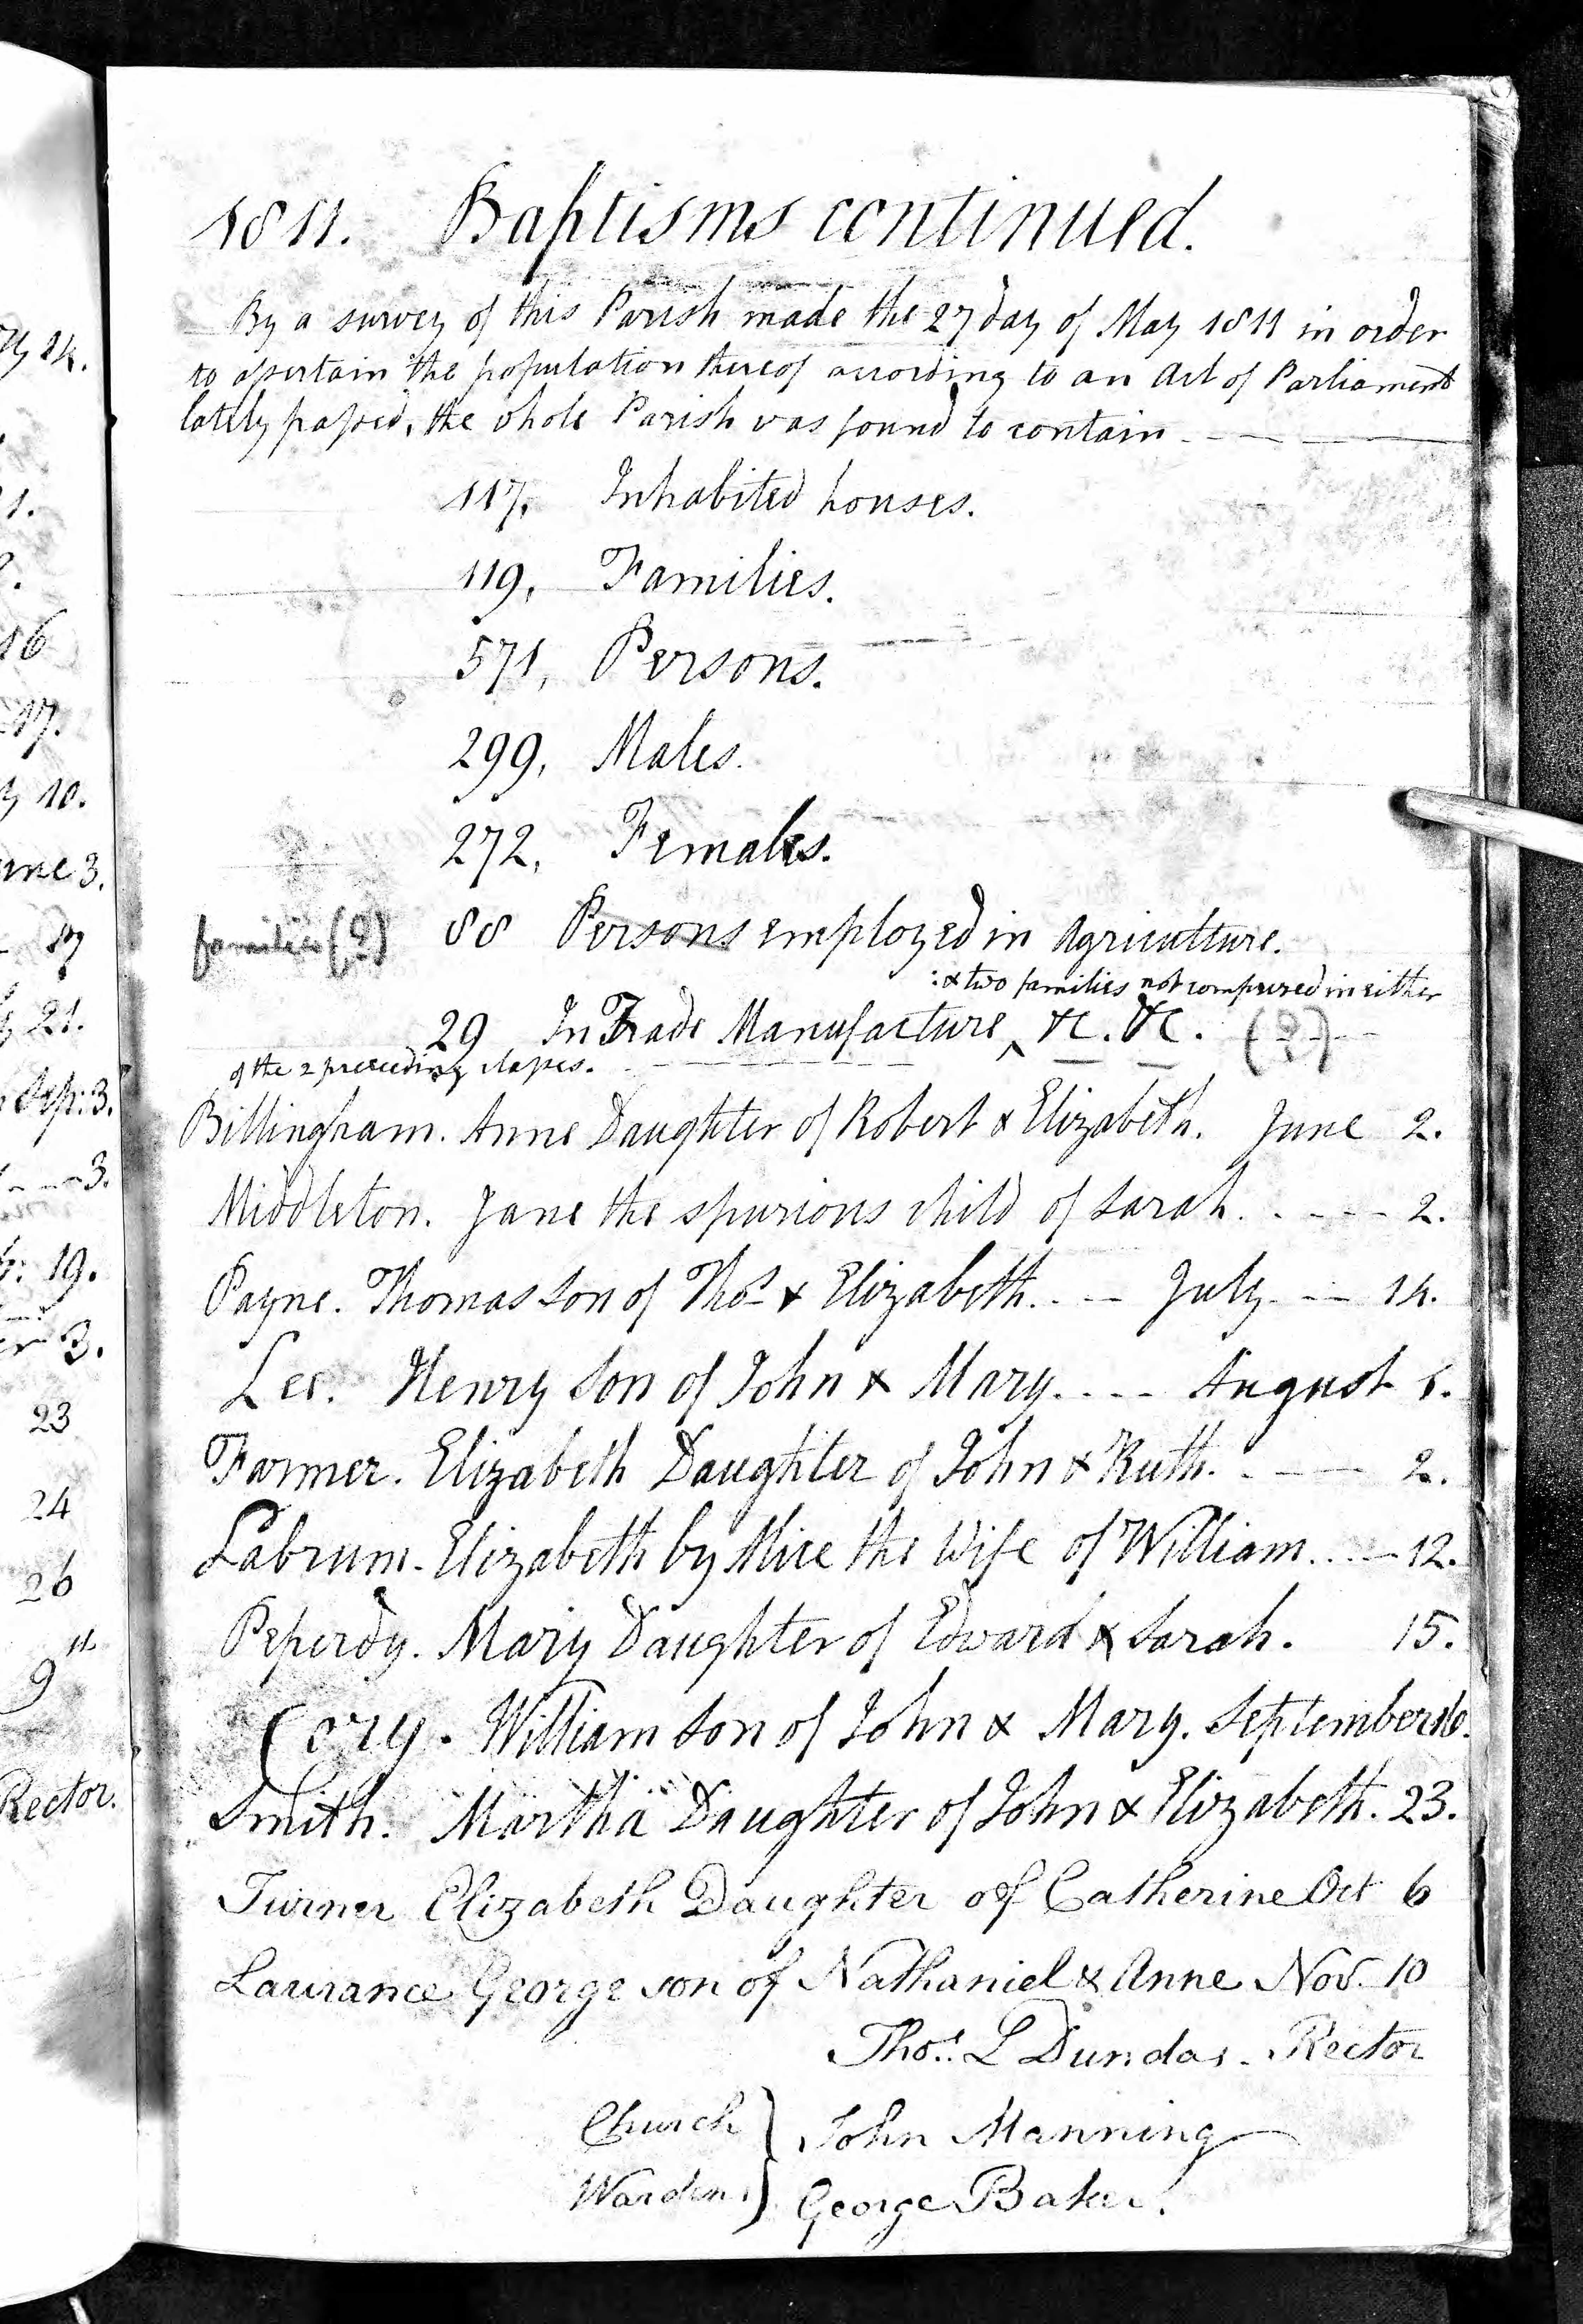 1811. Baptisms continued.
By a survey of this Parish made the 27 day of May 1811 in order
to assertain the population thereof according to an Act of Parliament
lately passed, the whole Parish was found to contain
117, Inhabited houses.
119, Families.
571, Persons.
299, Males.
272, Females.
families (?) 88 Persons employed in Agriculture.
: & two families not comprised in either
29 In Trade Manufacture ‸ &c. &c. (?)
of the 2 preceeding classes.
Billingham. Anne Daughter of Robert & Elizabeth. June 2.
Middleton. Jane the spurious child of Sarah. 2.
Payne. Thomas Son of Thos & Elizabeth. July 14.
Lee. Henry Son of John & Mary. August
Farmer. Elizabeth Daughter of John & Ruth. 2.
Labrum. Elizabeth by Alice the Wife of William. 12.
Peperdy. Mary Daughter of Edward & Sarah. 15.
Cory. William Son of John & Mary. September 16.
Smith. Martha Daughter of John & Elizabeth. 23.
Turner Elizabeth Daughter of Catherine Oct 6
Laurance George son of Nathaniel & Anne Nov. 10
Thos. L Dundas - Rector
Church } John Manning
Wardens } George Baker.
ne 3.
21.
Sep: 3.
3.
19.
3.
23
24
26
9
Rector.
16
17.
10.